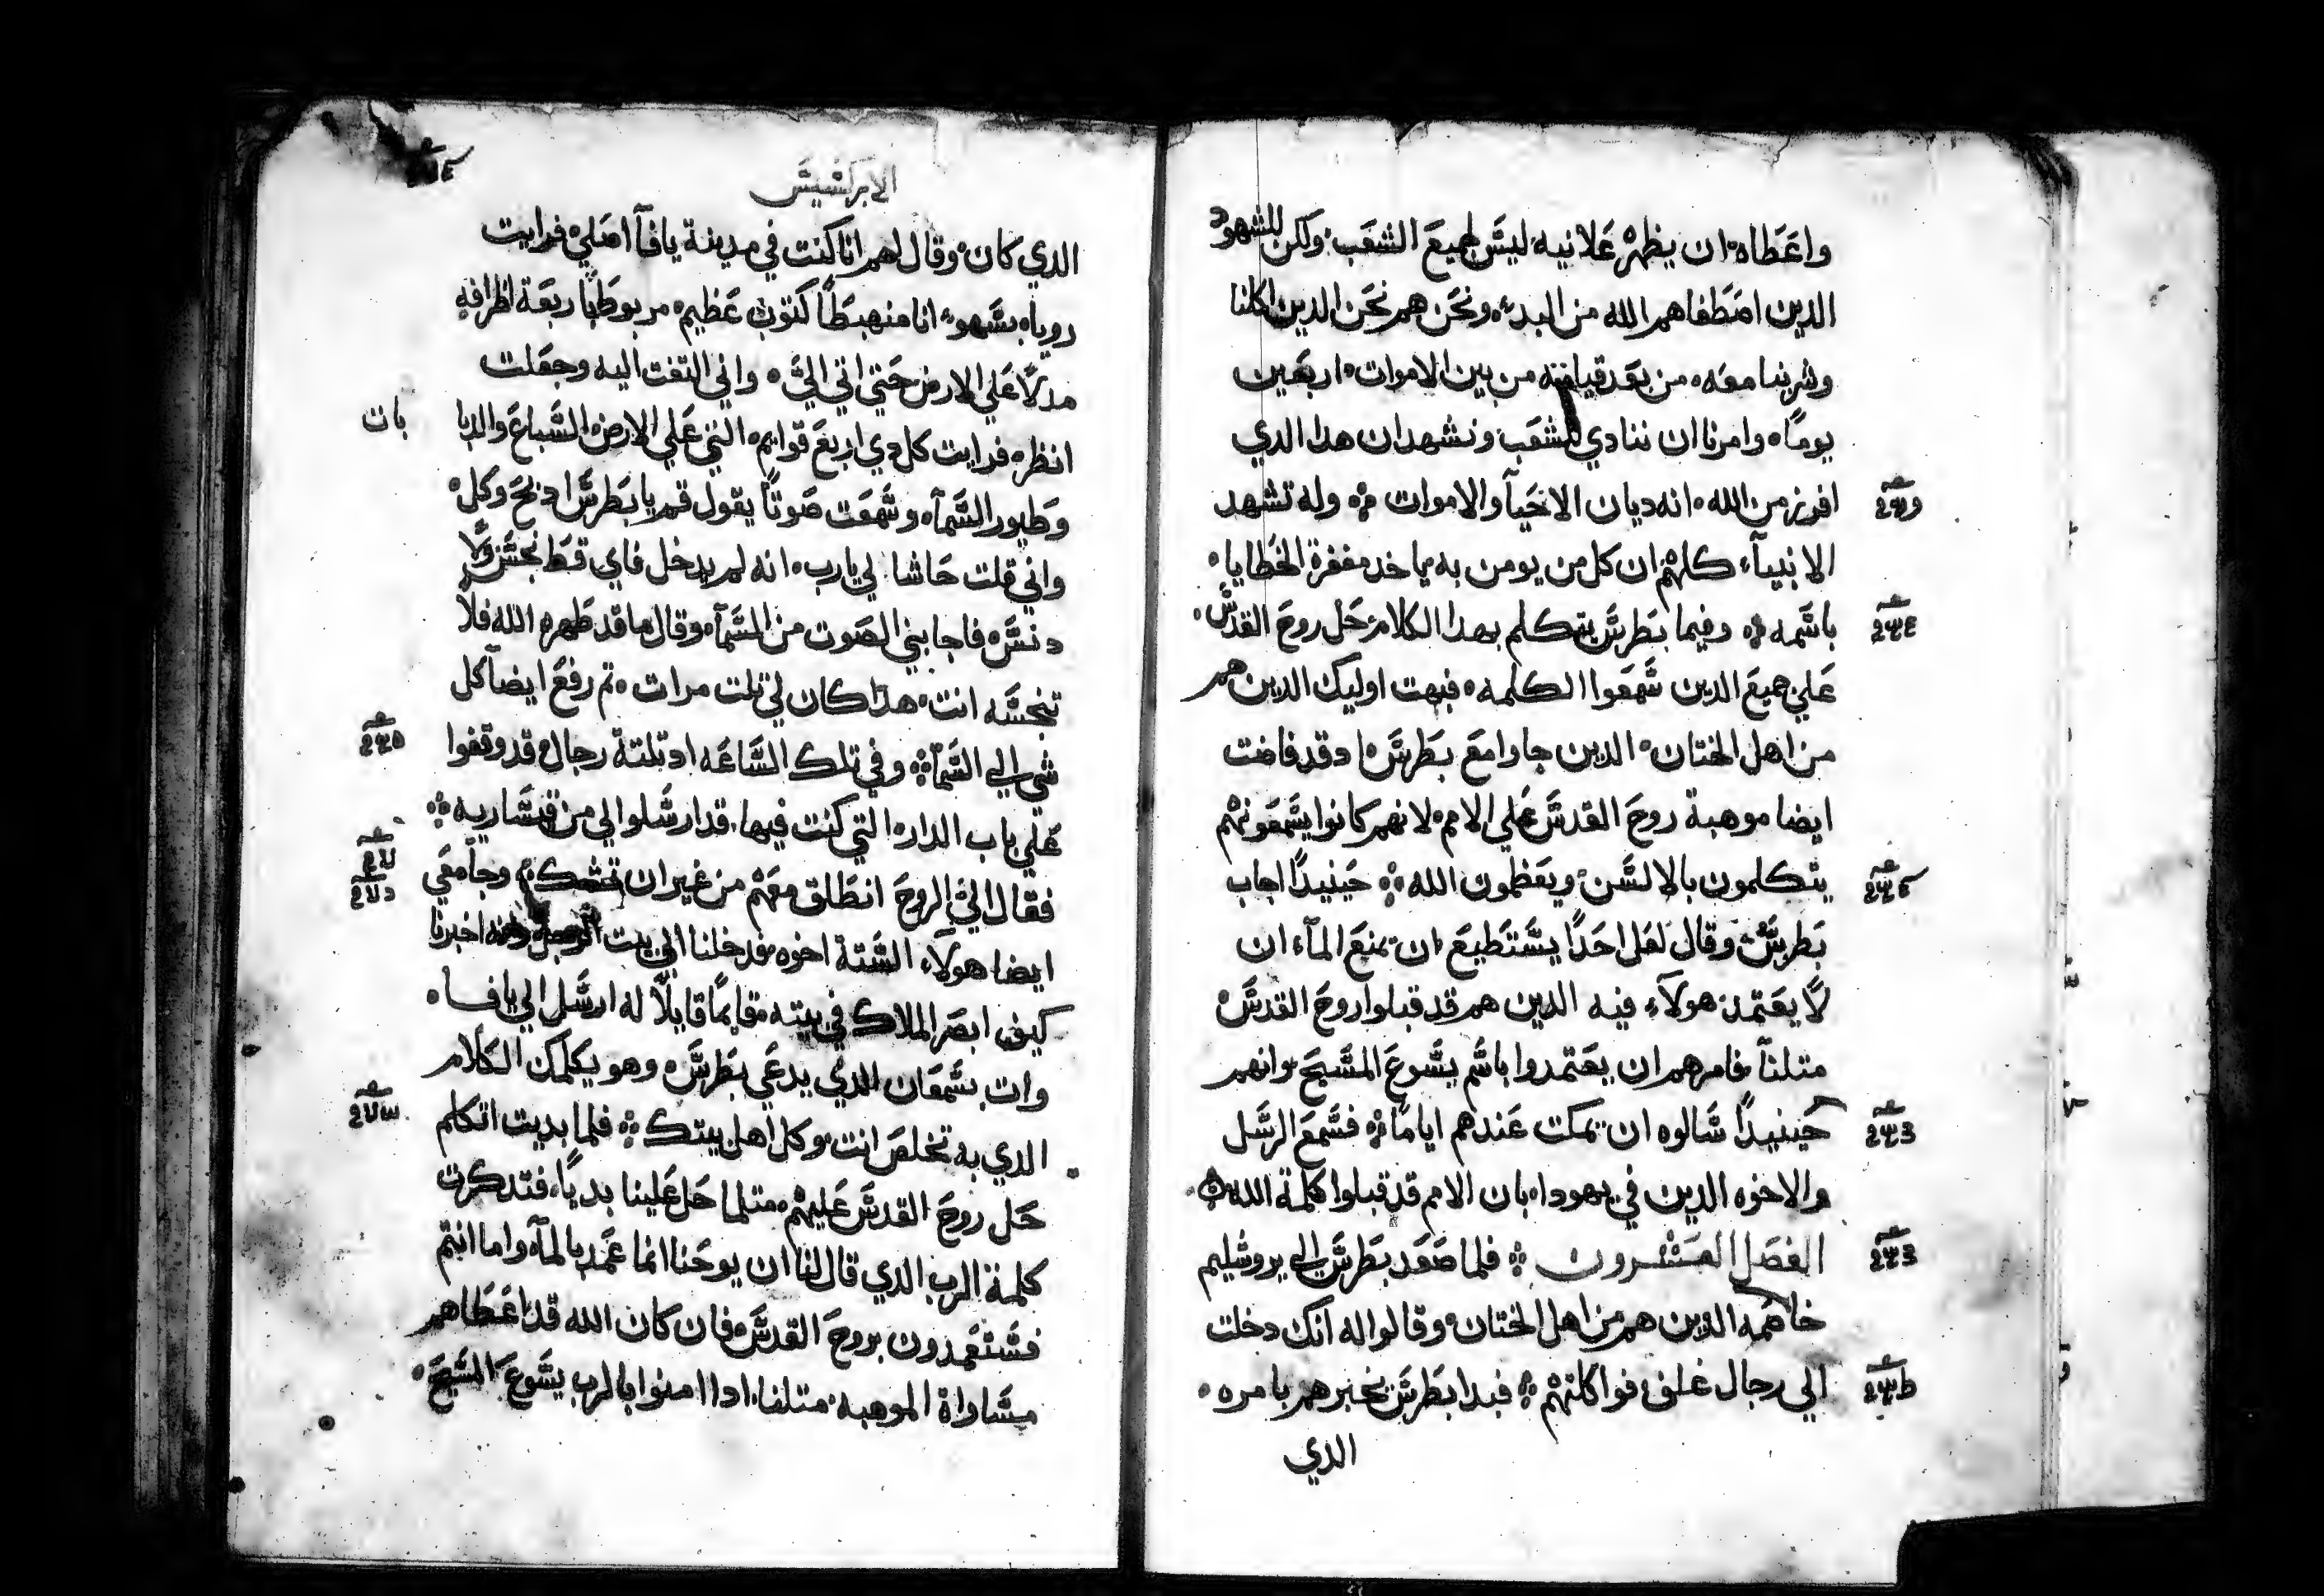 واعطاه ان يظهر علانيه ليس لجميع الشعب ولكن للشهود
الدين اصطفاهم الله من البدء ونحن هم نحن الدين اكلنا
وشربنا معه من بعد قيامته من بين الاموات اربعين
يومًا وامرنا ان ننادي للشعب ونشهد ان هدا الدي
افرز من الله انه ديان الاحيآ والاموات وله تشهد
الانبيآء كلهم ان كل من يومن به ياخد مغفرة الخطايا
باسمه وفيما بطرس يتكلم بهدا الكلام حل روح القدس
علي جميع الدين سمعوا الكلمه فبهت اوليك الدين هم
من اهل الختان الدين جاوا مع بطرس ادقد فاضت
ايضا موهبة روح القدس علي الامم لانهم كانوا يسمعونهم
يتكلمون بالالسن ويعظمون الله حينيدًا اجاب
بطرس وقال لعل احدًا يستطيع ان يمنع المآء ان
لا يعتمد هولآء فيه الدين هم قد قبلوا روح القدس
متلنآ فامرهم ان يعتمدوا باسم يسوع المسيح وانهم
حينيدًا سالوه ان يمكت عندهم ايامًا فسمع الرسل
والاخوه الدين في يهودا بان الامم قد قبلوا كلمة الله
الفصل العشرون فلما صعد بطرس الي يروشليم
خاصمه الدين هم من اهل الختان وقالوا له انك دخلت
الي رجال غلف فواكلتهم فبدا بطرس يخبرهم بامره
الدي
الابركسيس
الدي كان وقال لهم انا كنت في مدينة يافآ اصلي فرايت
رويا بسهو انا منهبطًا كتوب عظيم مربوطًا باربعة اطرافه
مدلاً علي الارض حتي اتي الي واني التفت اليه وجعلت
انظر فرايت كل دي اربع قوايم التي علي الارض السباع والدبا
بات
وطيور السمآ وسمعت صوتًا يقول قم يا بطرس ادبح وكل
واني قلت حاشا لي يارب انه لم يدخل فاي قط نجس ولا
دنس فاجابني الصوت من السمآ وقال ما قد طهره الله فلا
تنجسه انت هدا كان لي تلت مرات تم رفع ايضآ كل
شي الي السمآ وفي تلك الساعه ادتلتة رجال قد وقفوا
علي باب الدار التي كنت فيها قد ارسلوا الي من قيساريه
فقال لي الروح انطلق معهم من غير ان تشك وجآ معي
ايضا هولآء الستة اخوه فدخلنا الي بيت الرجل وانه اخبرنا
كيف ابصر الملاك في بيته قايمًا قايلاً له ارسل الي يافا
وات بسمعان الدي يدعي بطرس وهو يكلمك الكلام
الدي به تخلص انت وكل اهل بيتك فلما بديت اتكلم
حل روح القدس عليهم متلما حل علينا بديًا فتدكرت
كلمة الرب الدي قال لنا ان يوحنا انما عمد بالمآ واما انتم
فستعمدون بروح القدس فان كان الله قد اعطاهم
مساواة الموهبه متلنا اداامنوا بالرب يسوع المسيح